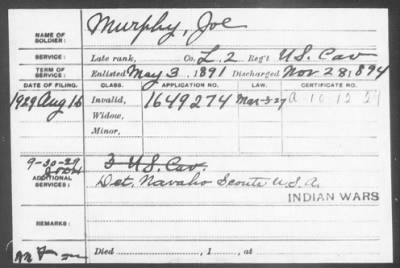 NAME OF SOLDIER: Murphy, Joe
SERVICE: Late rank, Co. L, 2 Reg't U.S. Cav
TERM OF SERVICE: Enlisted May 3, 1891 Discharged Nov. 28, 1894
DATE OF FILING. CLASS. APPLICATION NO. LAW. CERTIFICATE NO.
1929 Aug 16 Invalid, 1649274 Mar-3-27 A 10 12 29
Widow,
Minor,
9-30-29 3 U.S. Cav.
ADDITIONAL SERVICES: Det. Navaho Scouts U.S.A.
INDIAN WARS
REMARKS:
Died , 1 , at